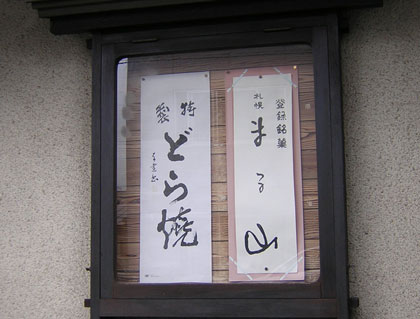 登録銘菓
札幌
まる山
特製
どら焼